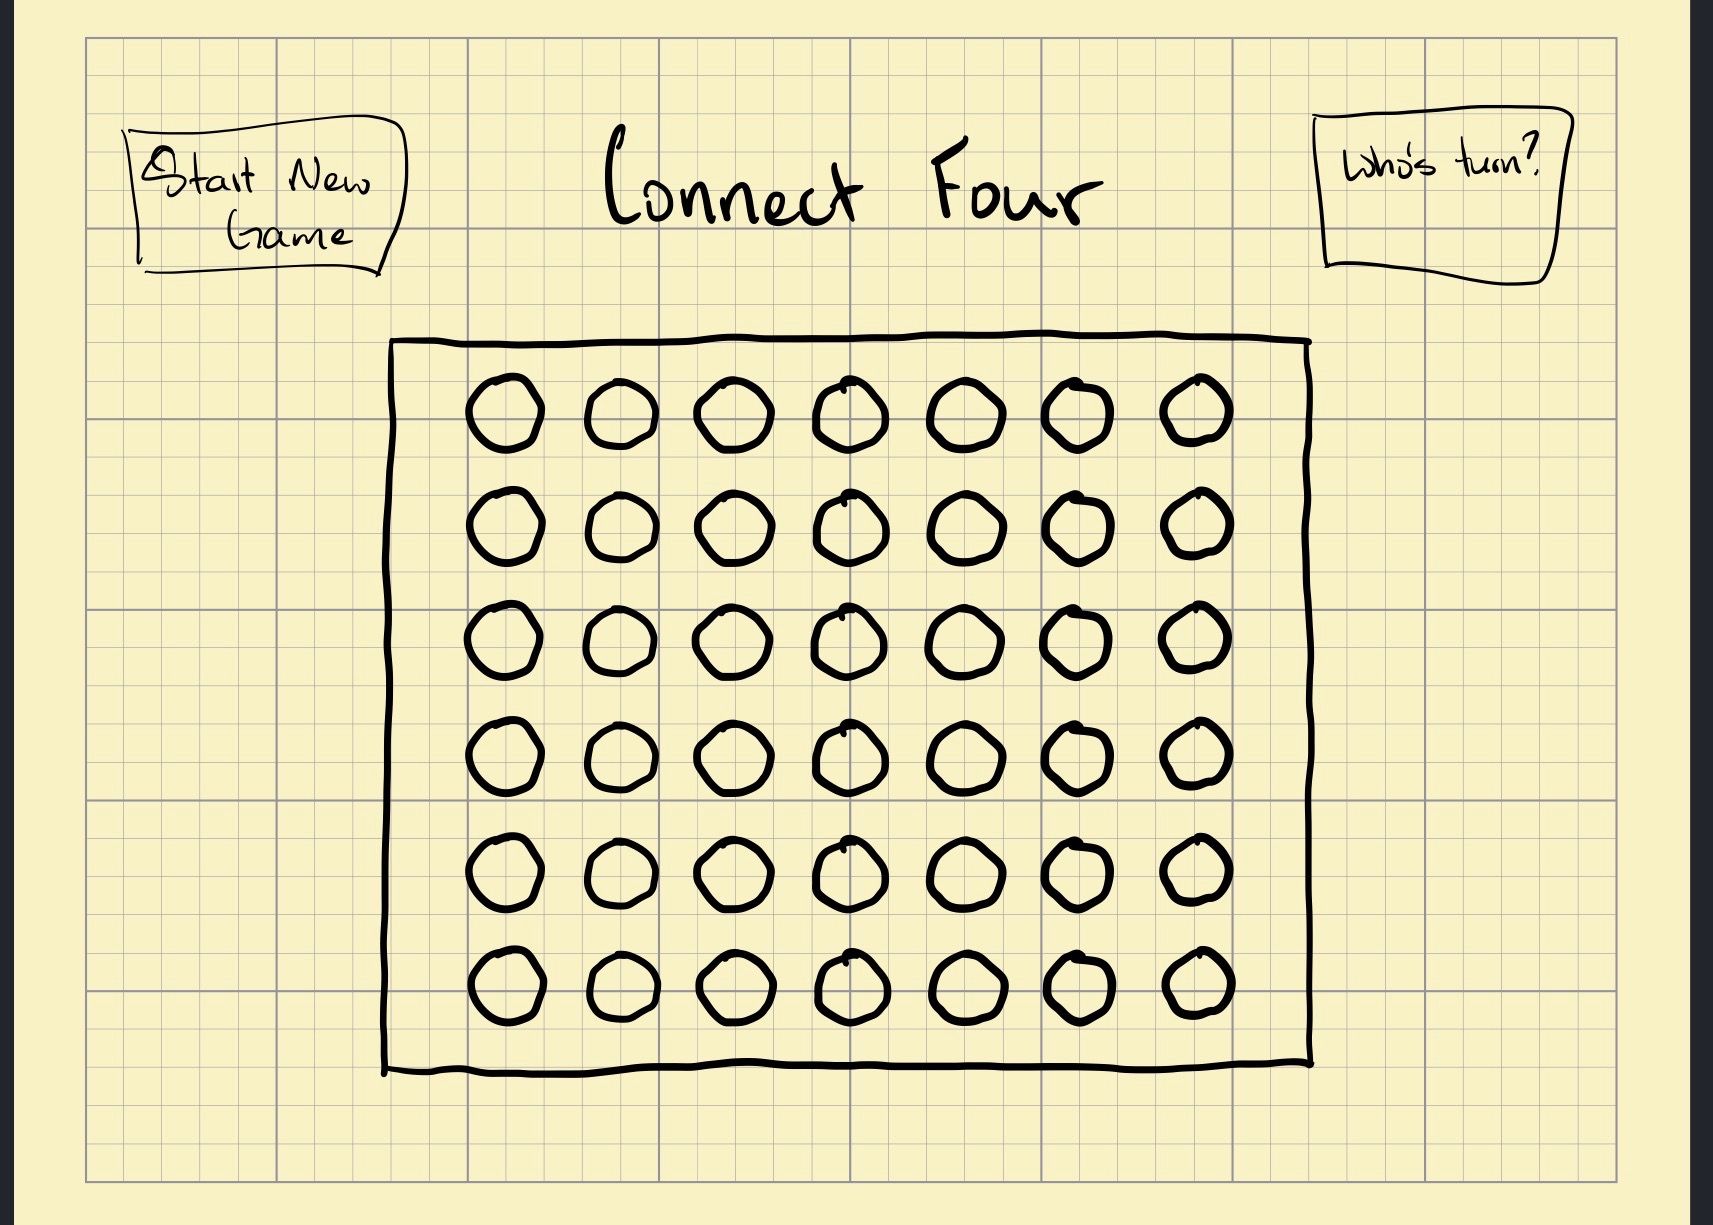 Start New
Game
Connect Four
Who's turn?